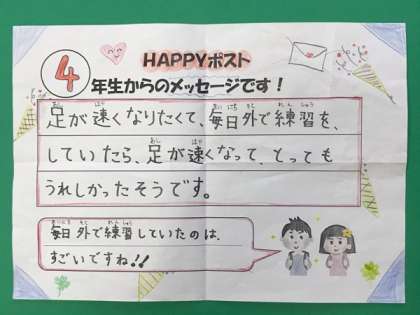 HAPPYポスト
4年生からのメッセージです!
足が速くなりたくて、毎日外で練習を、
していたら、足が速くなって、とっても
うれしかったそうです。
毎日外で練習していたのは、
すごいですね!!